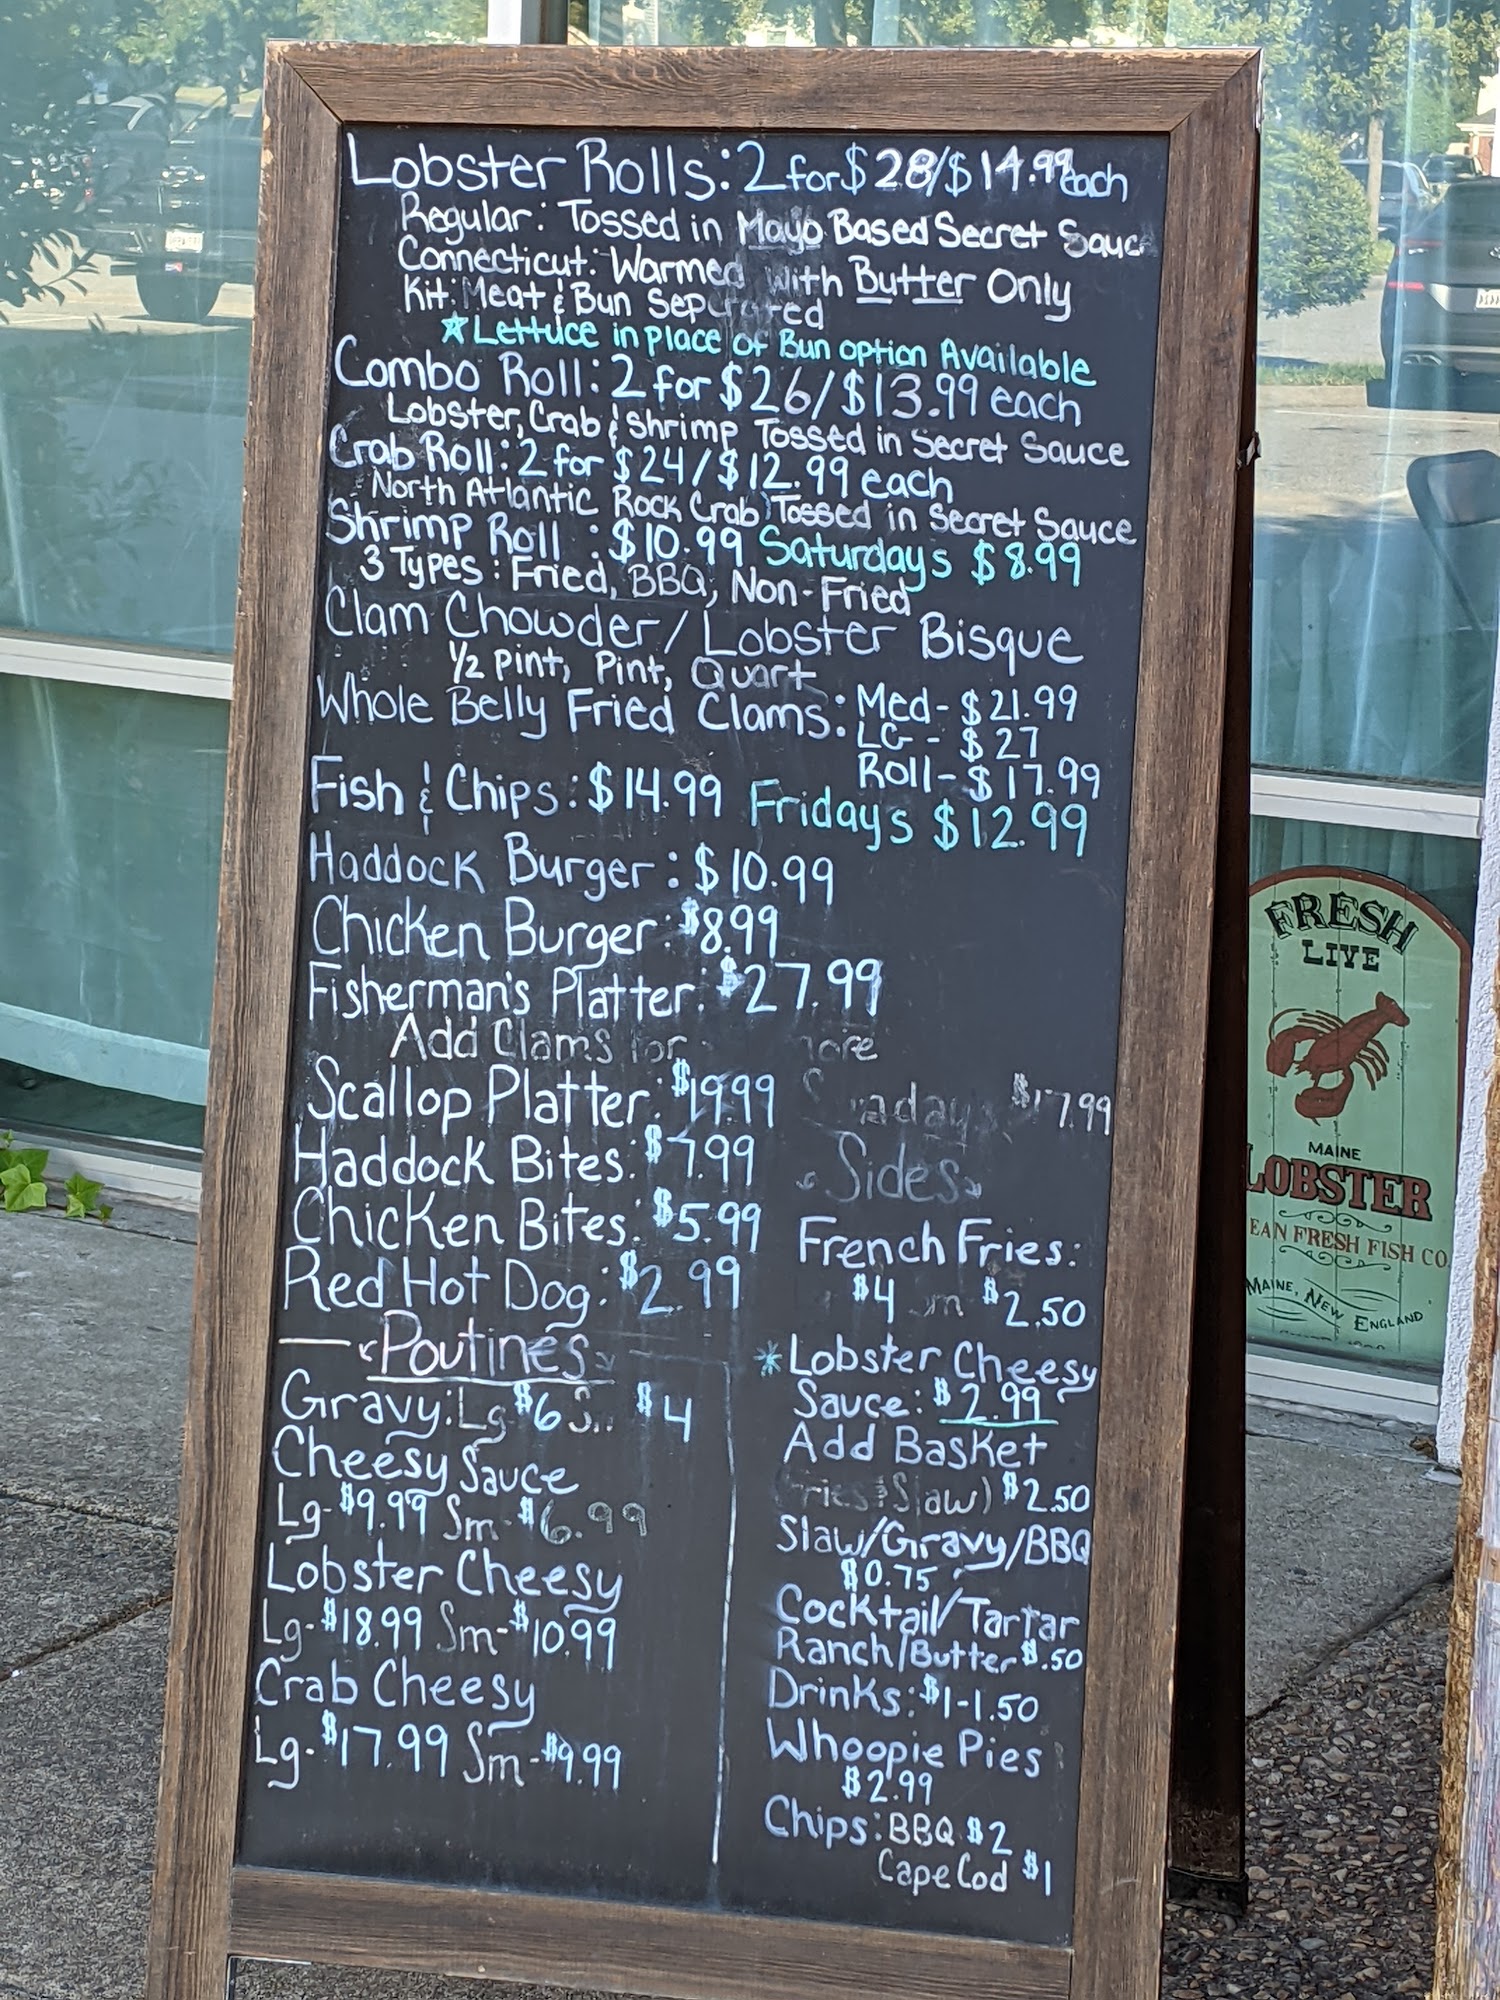 Lobster Rolls: 2 for $28/$14.99 each
Regular: Tossed in Mayo Based Secret Sauc
Connecticut: Warmed with Butter Only
Kit: Meat & Bun Seperated
*Lettuce in place of Bun option Available
Combo Roll: 2 for $26/$13.99 each
Lobster, Crab & Shrimp Tossed in Secret Sauce
Crab Roll: 2 for $24/$12.99 each
North Atlantic Rock Crab Tossed in Secret Sauce
Shrimp Roll: $10.99 Saturdays $8.99
3 Types: Fried, BBQ, Non-Fried
Clam Chowder/Lobster Bisque
1/2 pint, Pint, Quart
Whole Belly Fried Clams: Med- $21.99
LG - $27
Roll- $17.99
Fish & Chips: $14.99 Fridays $12.99
Haddock Burger: $10.99
Chicken Burger: $8.99
Fisherman's Platter: $27.99
Add Clams for
Scallop Platter: $19.99 $17.99
Haddock Bites: $7.99
Chicken Bites: $5.99
Red Hot Dog: $2.99
Poutines
Gravy: Lg $6 $4
Cheesy Sauce
Lg- $9.99 Sm- $6.99
Lobster Cheesy
Lg- $18.99 Sm- $10.99
Crab Cheesy
Lg- $17.99 Sm- $9.99
Sides
French Fries:
$4 Sm $2.50
*Lobster Cheesy
Sauce: $2.99
Add Basket
(Fries & Slaw) $2.50
Slaw/Gravy/BBQ
$0.75
Cocktail/Tartar
Ranch/Butter $.50
Drinks: $1-1.50
Whoopie Pies
$2.99
Chips: BBQ $2
Cape Cod $1
FRESH
LIVE
MAINE
LOBSTER
EAN FRESH FISH CO
MAINE, NEW ENGLAND